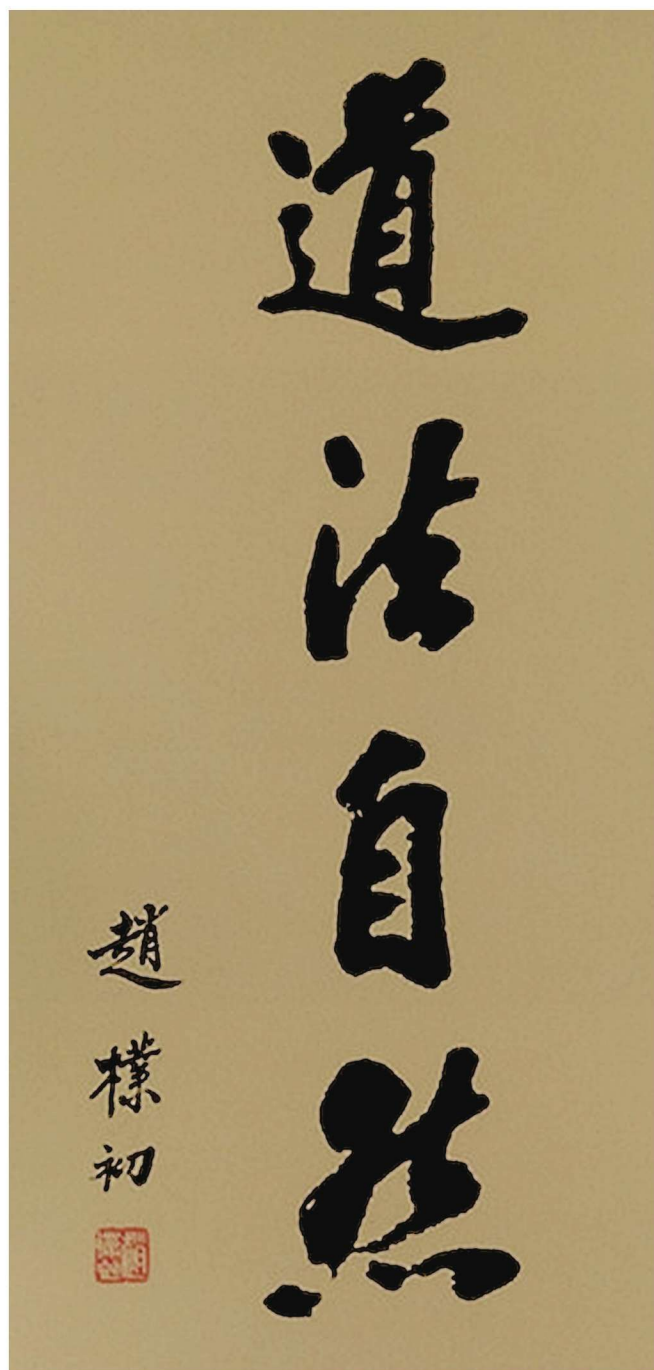 道法自然
趙樸初